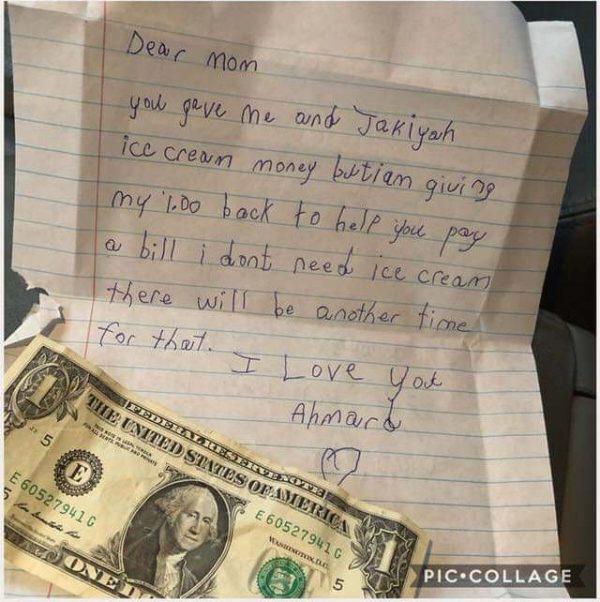 Dear mom
you gave me and Jakiyah
ice cream money butiam giving
my 1.00 back to help you pay
a bill i dont need ice cream
there will be another time
for that.
I Love You
Ahmard
FEDERAL RESERVE NOTE
THE UNITED STATES OF AMERICA
1
5
E
E 60527941 G
E 60527941 G
WASHINGTON, D.C.
5
1
ONE
PIC•COLLAGE